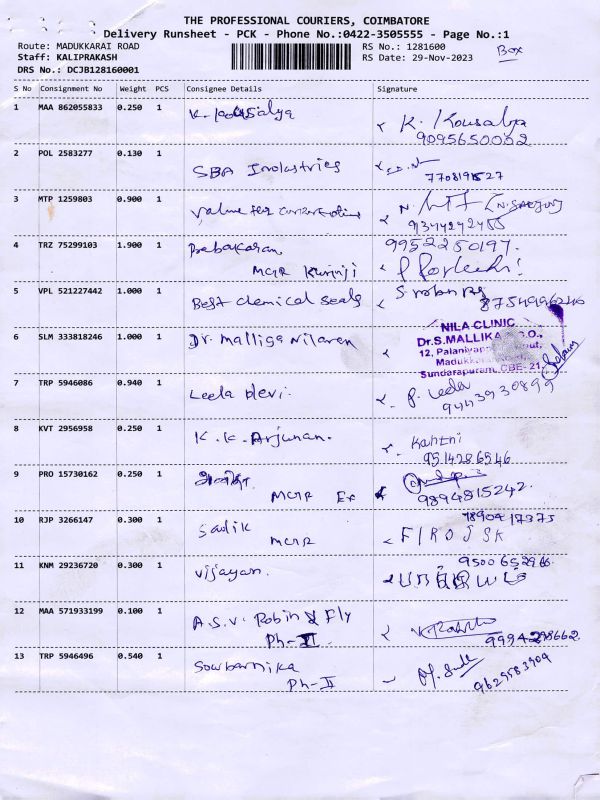 THE PROFESSIONAL COURIERS, COIMBATORE
Delivery Runsheet - PCK - Phone No.:0422-3505555 - Page No.:1
Route: MADUKKARAI ROAD
Staff: KALIPRAKASH
DRS No.: DCJB128160001
RS No.: 1281600
RS Date: 29-Nov-2023
Box
S No Consignment No Weight PCS Consignee Details Signature
1 MAA 862055833 0.250 1 K. Kousalya K. Kousalya
9095650002
2 POL 2583277 0.130 1 SBA Industries
7708191527
3 MTP 1259803 0.900 1 Value for
9344242455
4 TRZ 75299103 1.900 1 Prabakaran 9952250197.
MGR Kurinji
5 VPL 521227442 1.000 1 Best chemical seals
8754996246
6 SLM 333818246 1.000 1 Dr. Malliga Nilaven
NILA CLINIC
Dr.S.MALLIKA
12, Palaniyapp
Madukk
Sundarapuram, CBE- 21.
7 TRP 5946086 0.940 1 Leela devi. P. Leela
9443930899
8 KVT 2956958 0.250 1 K. K. Arjunan.
9514286546
9 PRO 15730162 0.250 1
MGR Ex 9894815242.
10 RJP 3266147 0.300 1 Sadik
MGR FIROJ SK
11 KNM 29236720 0.300 1 Vijayan.
12 MAA 571933199 0.100 1 A.S.V. Robin & Fly
Ph-II 9994298662
13 TRP 5946496 0.540 1 Sowbarnika
Ph-II 9629583909